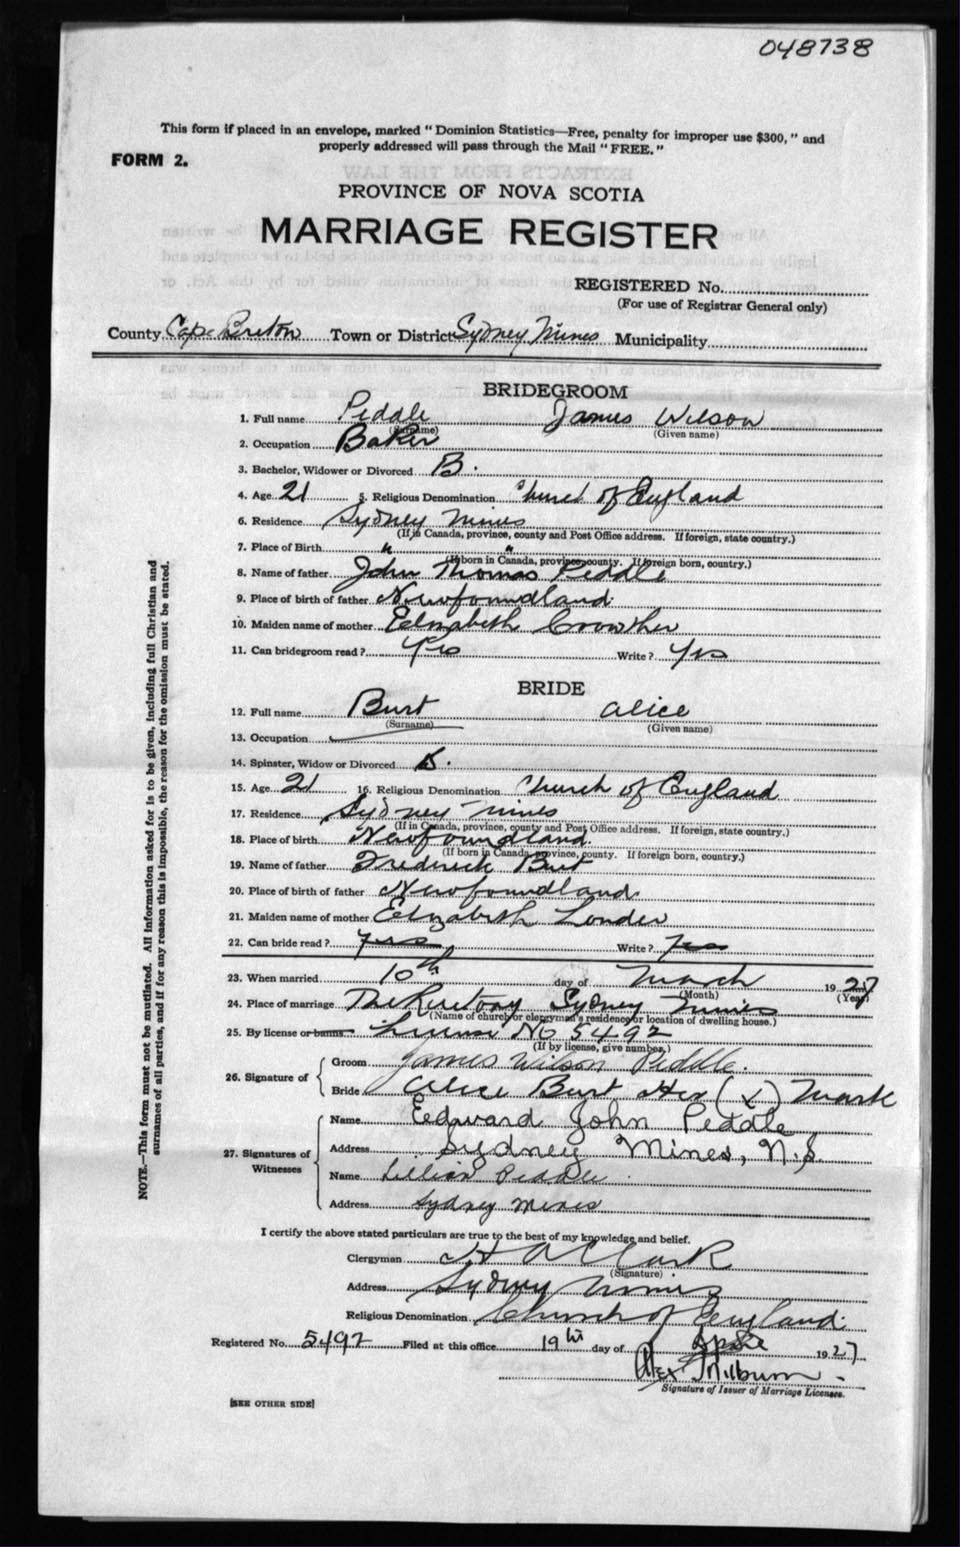 048738
This form if placed in an envelope, marked "Dominion Statistics—Free, penalty for improper use $300," and
properly addressed will pass through the Mail "FREE."
FORM 2.
PROVINCE OF NOVA SCOTIA
MARRIAGE REGISTER
REGISTERED No.
(For use of Registrar General only)
County Cape Breton Town or District Sydney Mines Municipality
BRIDEGROOM
1. Full name Peddle James Wilson
(Surname) (Given name)
2. Occupation Baker
3. Bachelor, Widower or Divorced B.
4. Age 21 5. Religious Denomination Church of England
6. Residence Sydney Mines
(If in Canada, province, county and Post Office address. If foreign, state country.)
7. Place of Birth " "
(If born in Canada, province, county. If foreign born, country.)
8. Name of father John Thomas Peddle
9. Place of birth of father Newfoundland
10. Maiden name of mother Elizabeth Crowther
11. Can bridegroom read? Yes Write? Yes
BRIDE
12. Full name Burt Alice
(Surname) (Given name)
13. Occupation
14. Spinster, Widow or Divorced S.
15. Age 21 16. Religious Denomination Church of England
17. Residence Sydney Mines
(If in Canada, province, county and Post Office address. If foreign, state country.)
18. Place of birth Newfoundland.
(If born in Canada, province, county. If foreign born, country.)
19. Name of father Frederick Burt
20. Place of birth of father Newfoundland
21. Maiden name of mother Elizabeth Londer
22. Can bride read? Yes Write? Yes
23. When married 10th day of March 1927
(Month) (Year)
24. Place of marriage The Rectory Sydney Mines
(Name of church or clergyman's residence or location of dwelling house.)
25. By license or banns License No 5492
(If by license, give number.)
26. Signature of
Groom James Wilson Peddle.
Bride Alice Burt Her (X) Mark
27. Signatures of Witnesses
Name Edward John Peddle
Address Sydney Mines, N.S.
Name Lillian Peddle
Address Sydney Mines
I certify the above stated particulars are true to the best of my knowledge and belief.
Clergyman H A Clark
(Signature)
Address Sydney Mines
Religious Denomination Church of England.
Registered No. 5492 Filed at this office 19th day of April 1927
Alex Milburn
Signature of Issuer of Marriage Licenses.
[SEE OTHER SIDE]
NOTE.—This form must not be mutilated. All information asked for is to be given, including full Christian and
surnames of all parties, and if for any reason this is impossible, the reason for the omission must be stated.